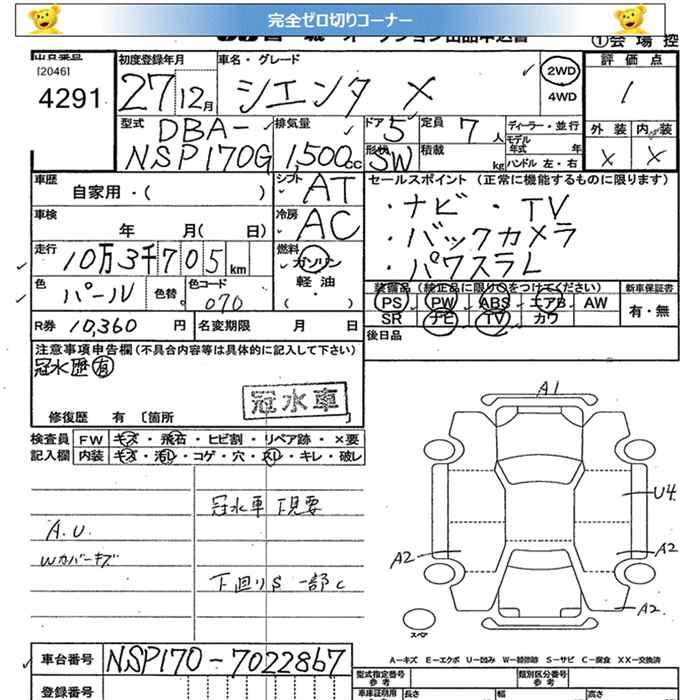 完全ゼロ切りコーナー
オークション出品申込書
①会場控
[2046]
4291
初度登録年月
27 12月
車名・グレード
シエンタ X
2WD
4WD
評価点
1
外装 内装
× ×
型式
DBA-
NSP170G
排気量
1,500cc
ドア 5
形状 SW
定員 7人
積載 kg
ディーラー・並行
モデル年式 年
ハンドル 左・右
車歴
自家用・( )
シフト
AT
セールスポイント (正常に機能するものに限ります)
・ナビ ・TV
・バックカメラ
・パワスラL
車検
年 月( 日)
冷房
AC
走行
10万3千705km
燃料
ガソリン
軽油
( ・ )
色
パール
色替
色コード
070
装備品 (純正品に限り○をつけてください)
PS PW ABS エアB AW
SR ナビ TV カワ
新車保証書
有・無
R券 10,360円
名変期限 月 日
後日品
注意事項申告欄 (不具合内容等は具体的に記入して下さい)
冠水歴有
冠水車
修復歴 有 〔箇所 〕
検査員 FW キズ・飛石・ヒビ割・リペア跡・×要
記入欄 内装 キズ・汚レ・コゲ・穴・スレ・キレ・破レ
冠水車 下見要
A.U.
Wカバーキズ
下回りS 一部C
A1
U4
A2
A2
A2
スペア
A-キズ E-エクボ U-凹み W-補修跡 S-サビ C-腐食 XX-交換済
車台番号 NSP170-7022867
登録番号
型式指定番号
参考
類別区分番号
参考
車庫証明用
長さ
幅
高さ